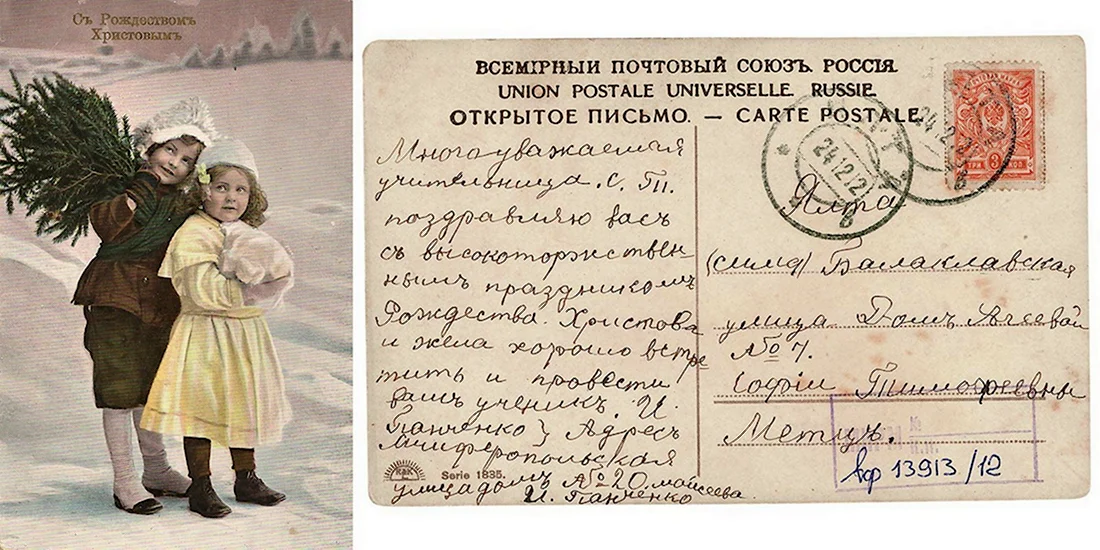 Съ Рождествомъ
Христовымъ
ВСЕМІРНЫИ ПОЧТОВЫЙ СОЮЗЪ. РОССІЯ.
UNION POSTALE UNIVERSELLE. RUSSIE.
ОТКРЫТОЕ ПИСЬМО. — CARTE POSTALE.
Многоуважаемая
учительница. С. Т.
поздравляю васъ
съ высокоторжествен
нымъ праздникомъ
Рождества. Христова
и жела хорошо встре
тить и провести
вашъ ученикъ. И.
Панченко} Адресъ
Симферопольская
улица домъ №20. моисеева.
И. Панченко
Serie 1835.
24.12.12
ТРИ 3 КОП
Ялта
(симф) Балаклавская
улица Домъ
№ 7.
Софіи Тимофеевны
Метцъ.
№
вф 13913/12